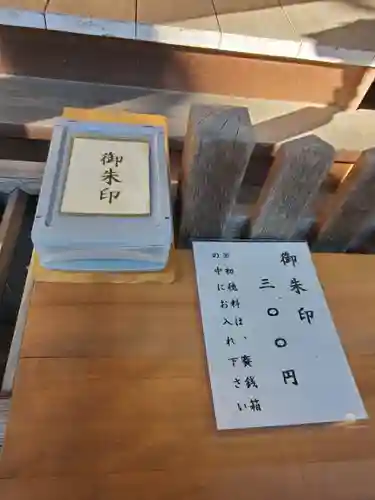 御朱印
御朱印
三〇〇円
※初穂料は、賽銭箱
の中にお入れ下さい